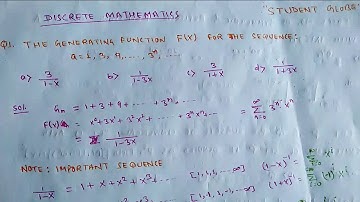 DISCRETE MATHEMATICS
"STUDENT GLOBA
Q1. THE GENERATING FUNCTION F(X) FOR THE SEQUENCE:
a = 1, 3, 9, ...., 3ⁿ, ....
a> 3/(1-x) b> 1/(1-3x) c> 3/(1+x) d> 1/(1+3x)
Sol. Gn = 1 + 3 + 9 + ---- + 3ⁿ, ---
F(x) = x⁰ + 3x¹ + 3²x² + ---- + 3ⁿxⁿ --- = ∑ 3ⁿ xⁿ n=0 ∞
= 1/(1-3x)
NOTE: IMPORTANT SEQUENCE
1/(1-x) = 1 + x + x² + x³ --- [1,1,1,---∞] (1-x)⁻¹ = ∑ xⁱ
(1+x)⁻¹ =